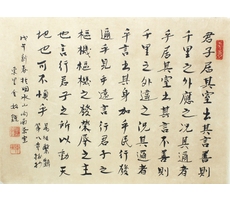 君子居其室出其言善則
千里之外應之況其邇者
乎居其室出其言不善則
千里之外違之況其邇者
乎言出乎身加乎民行發
乎邇見乎遠言行君子之
樞機樞機之發榮辱之主
也言行君子之所以動天
地也可不慎乎